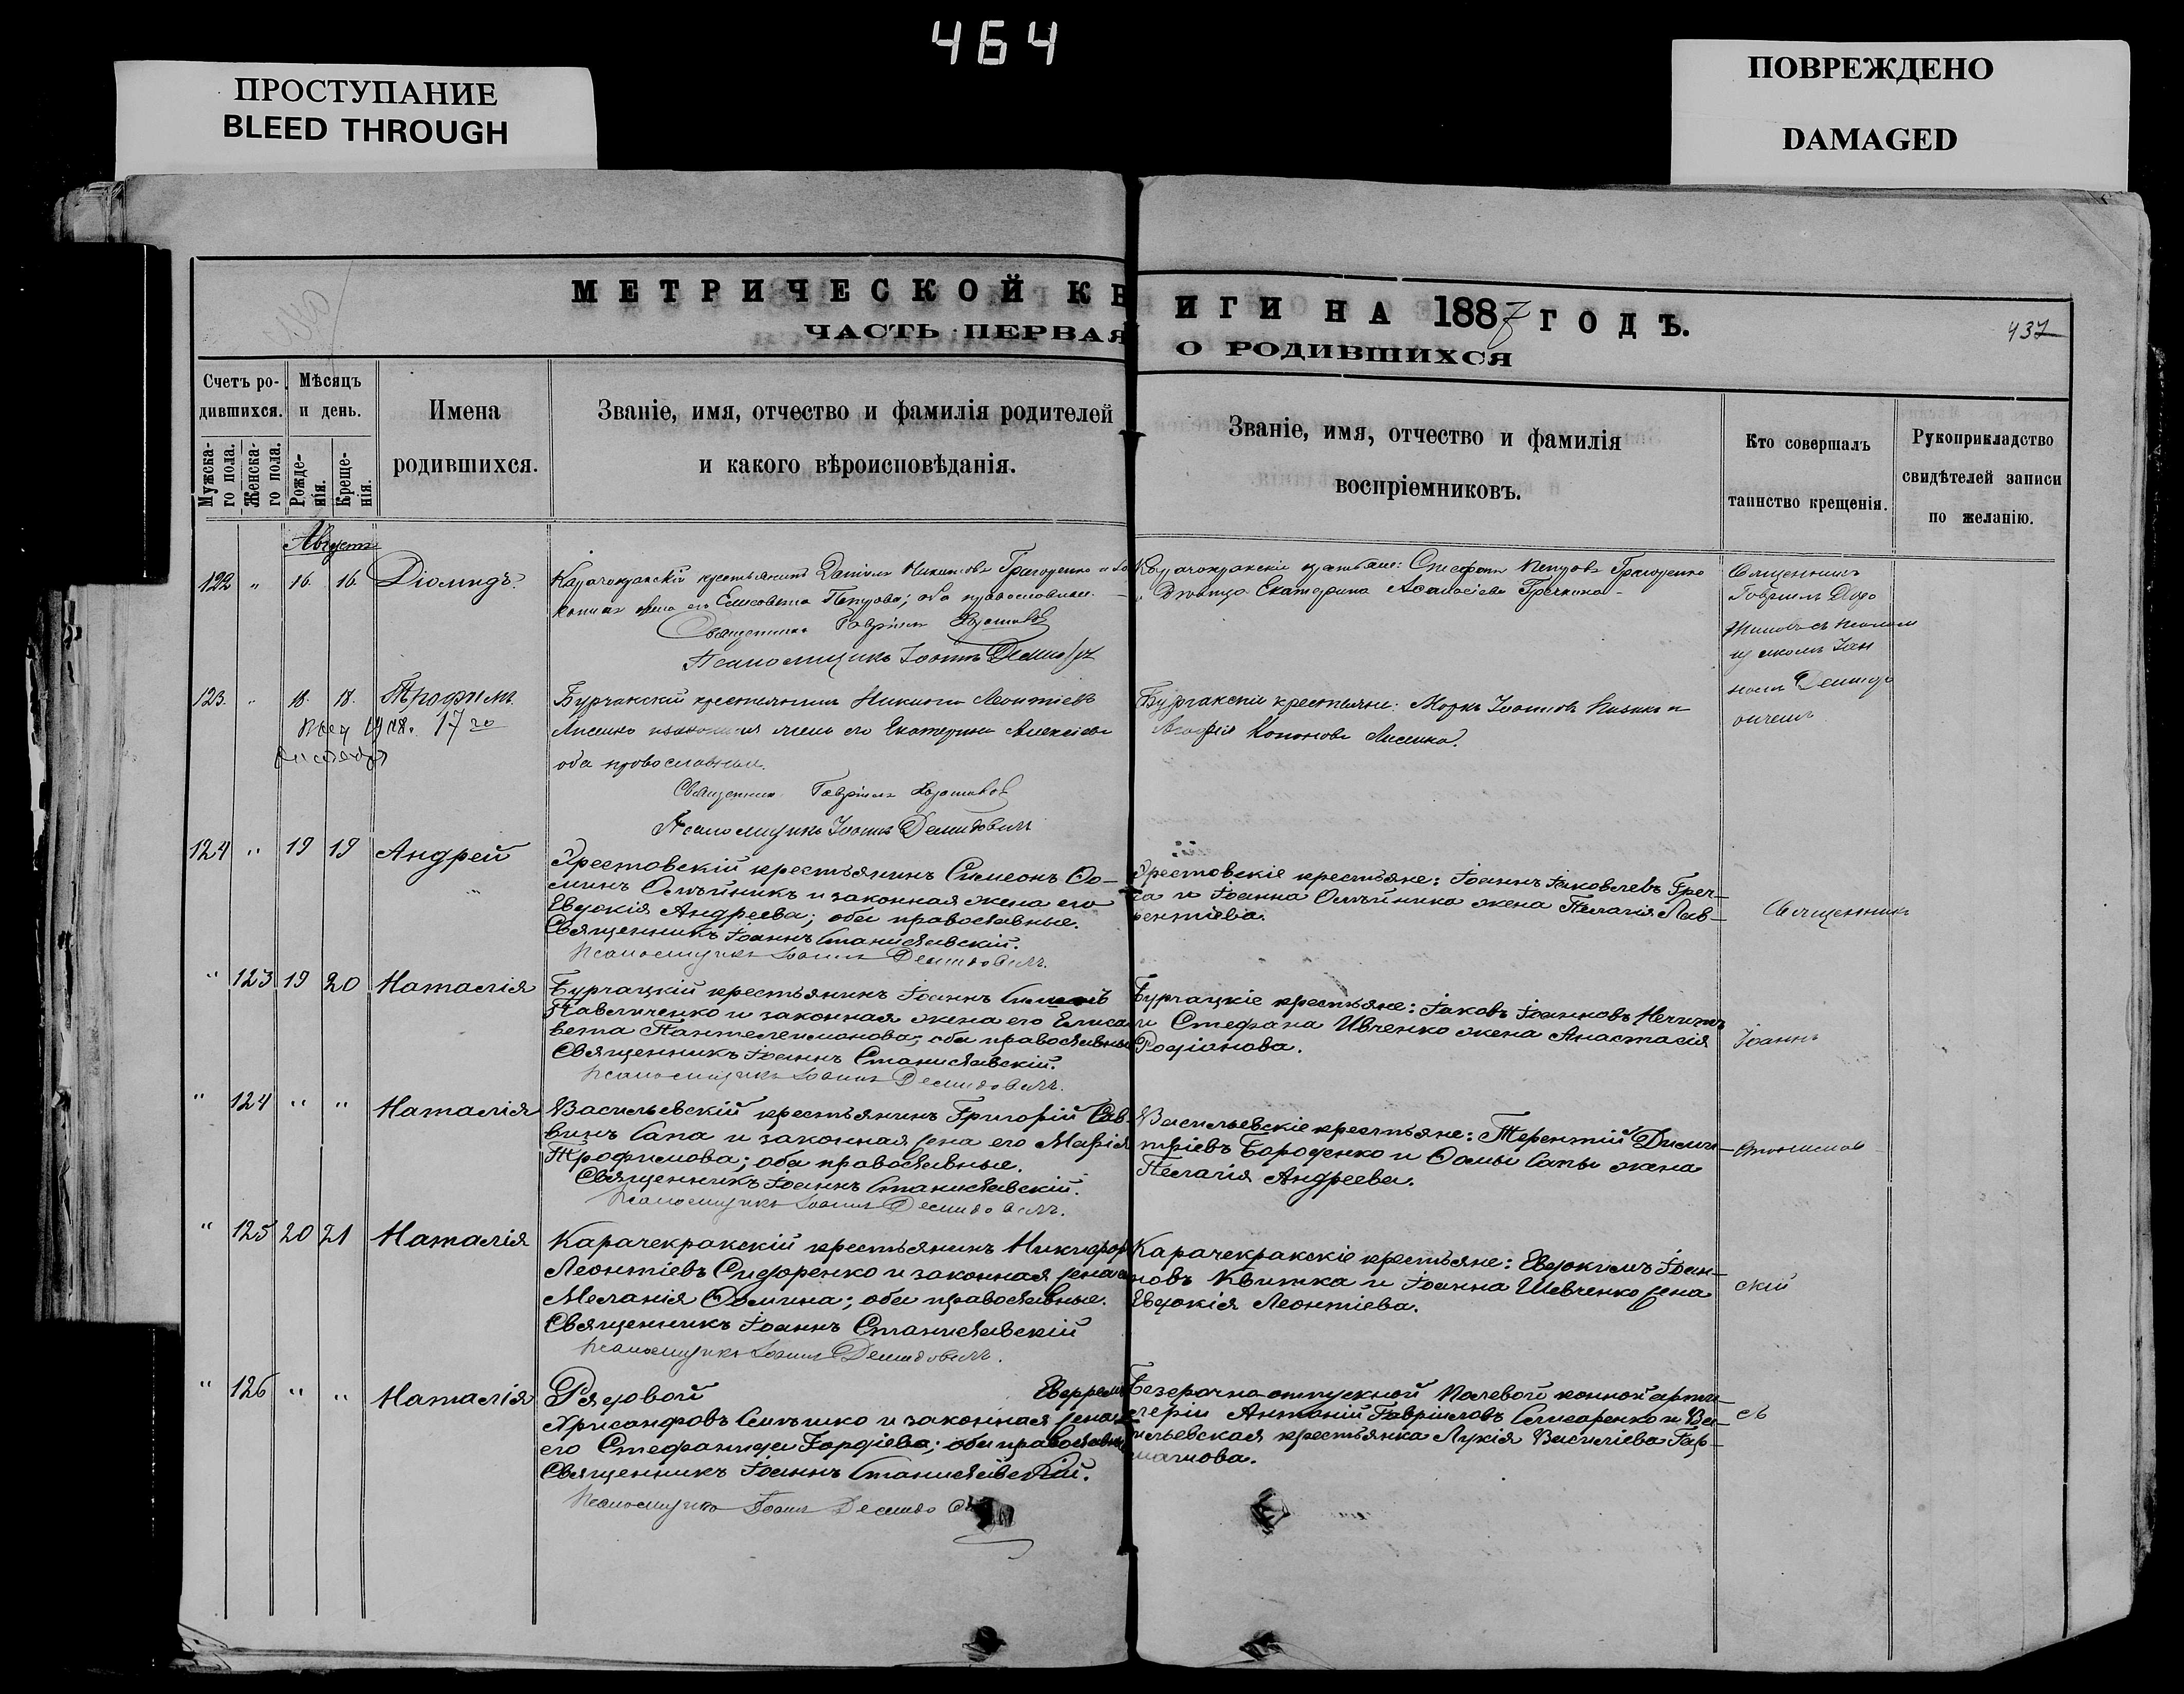 464
ПРОСТУПАНИЕ
BLEED THROUGH
ПОВРЕЖДЕНО
DAMAGED
МЕТРИЧЕСКОЙ КН
ИГИ НА 1887 ГОДЪ.
437
ЧАСТЬ ПЕРВАЯ
О РОДИВШИХСЯ
Счетъ ро-
дившихся.
Мужска-
го пола.
Женска-
го пола.
Мѣсяцъ
и день.
Рожде-
нія.
Креще-
нія.
Имена
родившихся.
Званіе, имя, отчество и фамилія родителей
и какого вѣроисповѣданія.
Званіе, имя, отчество и фамилія
воспріемниковъ.
Кто совершалъ
таинство крещенія.
Рукоприкладство
свидѣтелей записи
по желанію.
Августъ
122 " 16 16 Діомидъ
Карачокракскій крестьянинъ Даніилъ
жена его Елисавета Петрова; оба православные.
Священникъ Гавріилъ
Псаломщикъ Іоаннъ Демидович
Карачокракскіе крестьяне: Стефанъ Петровъ
и Дѣвица Екатерина Аѳанасіева
Священникъ
Гавріилъ
123. " 18. 18. Трофимъ.
17 го
Бурчакскій крестьянинъ Никита Леонтіевъ
Лисенко и законная жена его Екатерина Алексіева
оба православные.
Священникъ Гавріилъ
Псаломщикъ Іоаннъ Демидовичъ
Бурчакскіе крестьяне: Маркъ Іоанновъ и
Агафія Кононова Лисенко.
124 " 19 19 Андрей
Хрестовскій крестьянинъ Симеонъ Ѳо-
минъ Олѣйникъ и законная жена его
Евдокія Андреева; оба православные.
Священникъ Іоаннъ Станиславскій.
Псаломщикъ Іоаннъ Демидовичъ.
Хрестовскіе крестьяне: Іоаннъ Іаковлевъ Греч-
ка и Іоанна Олѣйника жена Пелагія Лав-
рентіева.
Священникъ
" 123 19 20 Наталія
Бурчацкій крестьянинъ Іоаннъ
Павличенко и законная жена его Елиса
вета Пантелеимонова; оба православные
Священникъ Іоаннъ Станиславскій.
Псаломщикъ Іоаннъ Демидовичъ.
Бурчацкіе крестьяне: Іаковъ Іоанновъ
и Стефана Ивченко жена Анастасія
Родіонова.
Іоаннъ
" 124 " " Наталія
Васильевскій крестьянинъ Григорій Сав
винъ Сапа и законная жена его Марія
Трофимова; оба православные.
Священникъ Іоаннъ Станиславскій.
Псаломщикъ Іоаннъ Демидовичъ.
Васильевскіе крестьяне: Терентій Дими-
тріевъ Бороденко и Ѳомы Сапы жена
Пелагія Андреева.
Станислав
" 125 20 21 Наталія
Карачекракскій крестьянинъ Никифоръ
Леонтіевъ Сидоренко и законная жена его
Меланія Ѳомина; оба православные.
Священникъ Іоаннъ Станиславскій
Псаломщикъ Іоаннъ Демидовичъ.
Карачекракскіе крестьяне: Евдокимъ Іоан-
новъ Квитка и Іоанна Шевченко жена
Евдокія Леонтіева.
скій
" 126 " " Наталія
Рядовой
Хрисанфовъ и законная жена
его Стефанида Гордіева; оба православные
Священникъ Іоаннъ Станиславскій.
Псаломщикъ Іоаннъ Демидович
Безсрочно-отпускной полевой конной арти-
леріи Антоній Гавріиловъ Слисаренко и Ва-
сильевская крестьянка Лукія Василіева Гар-
машова.
съ